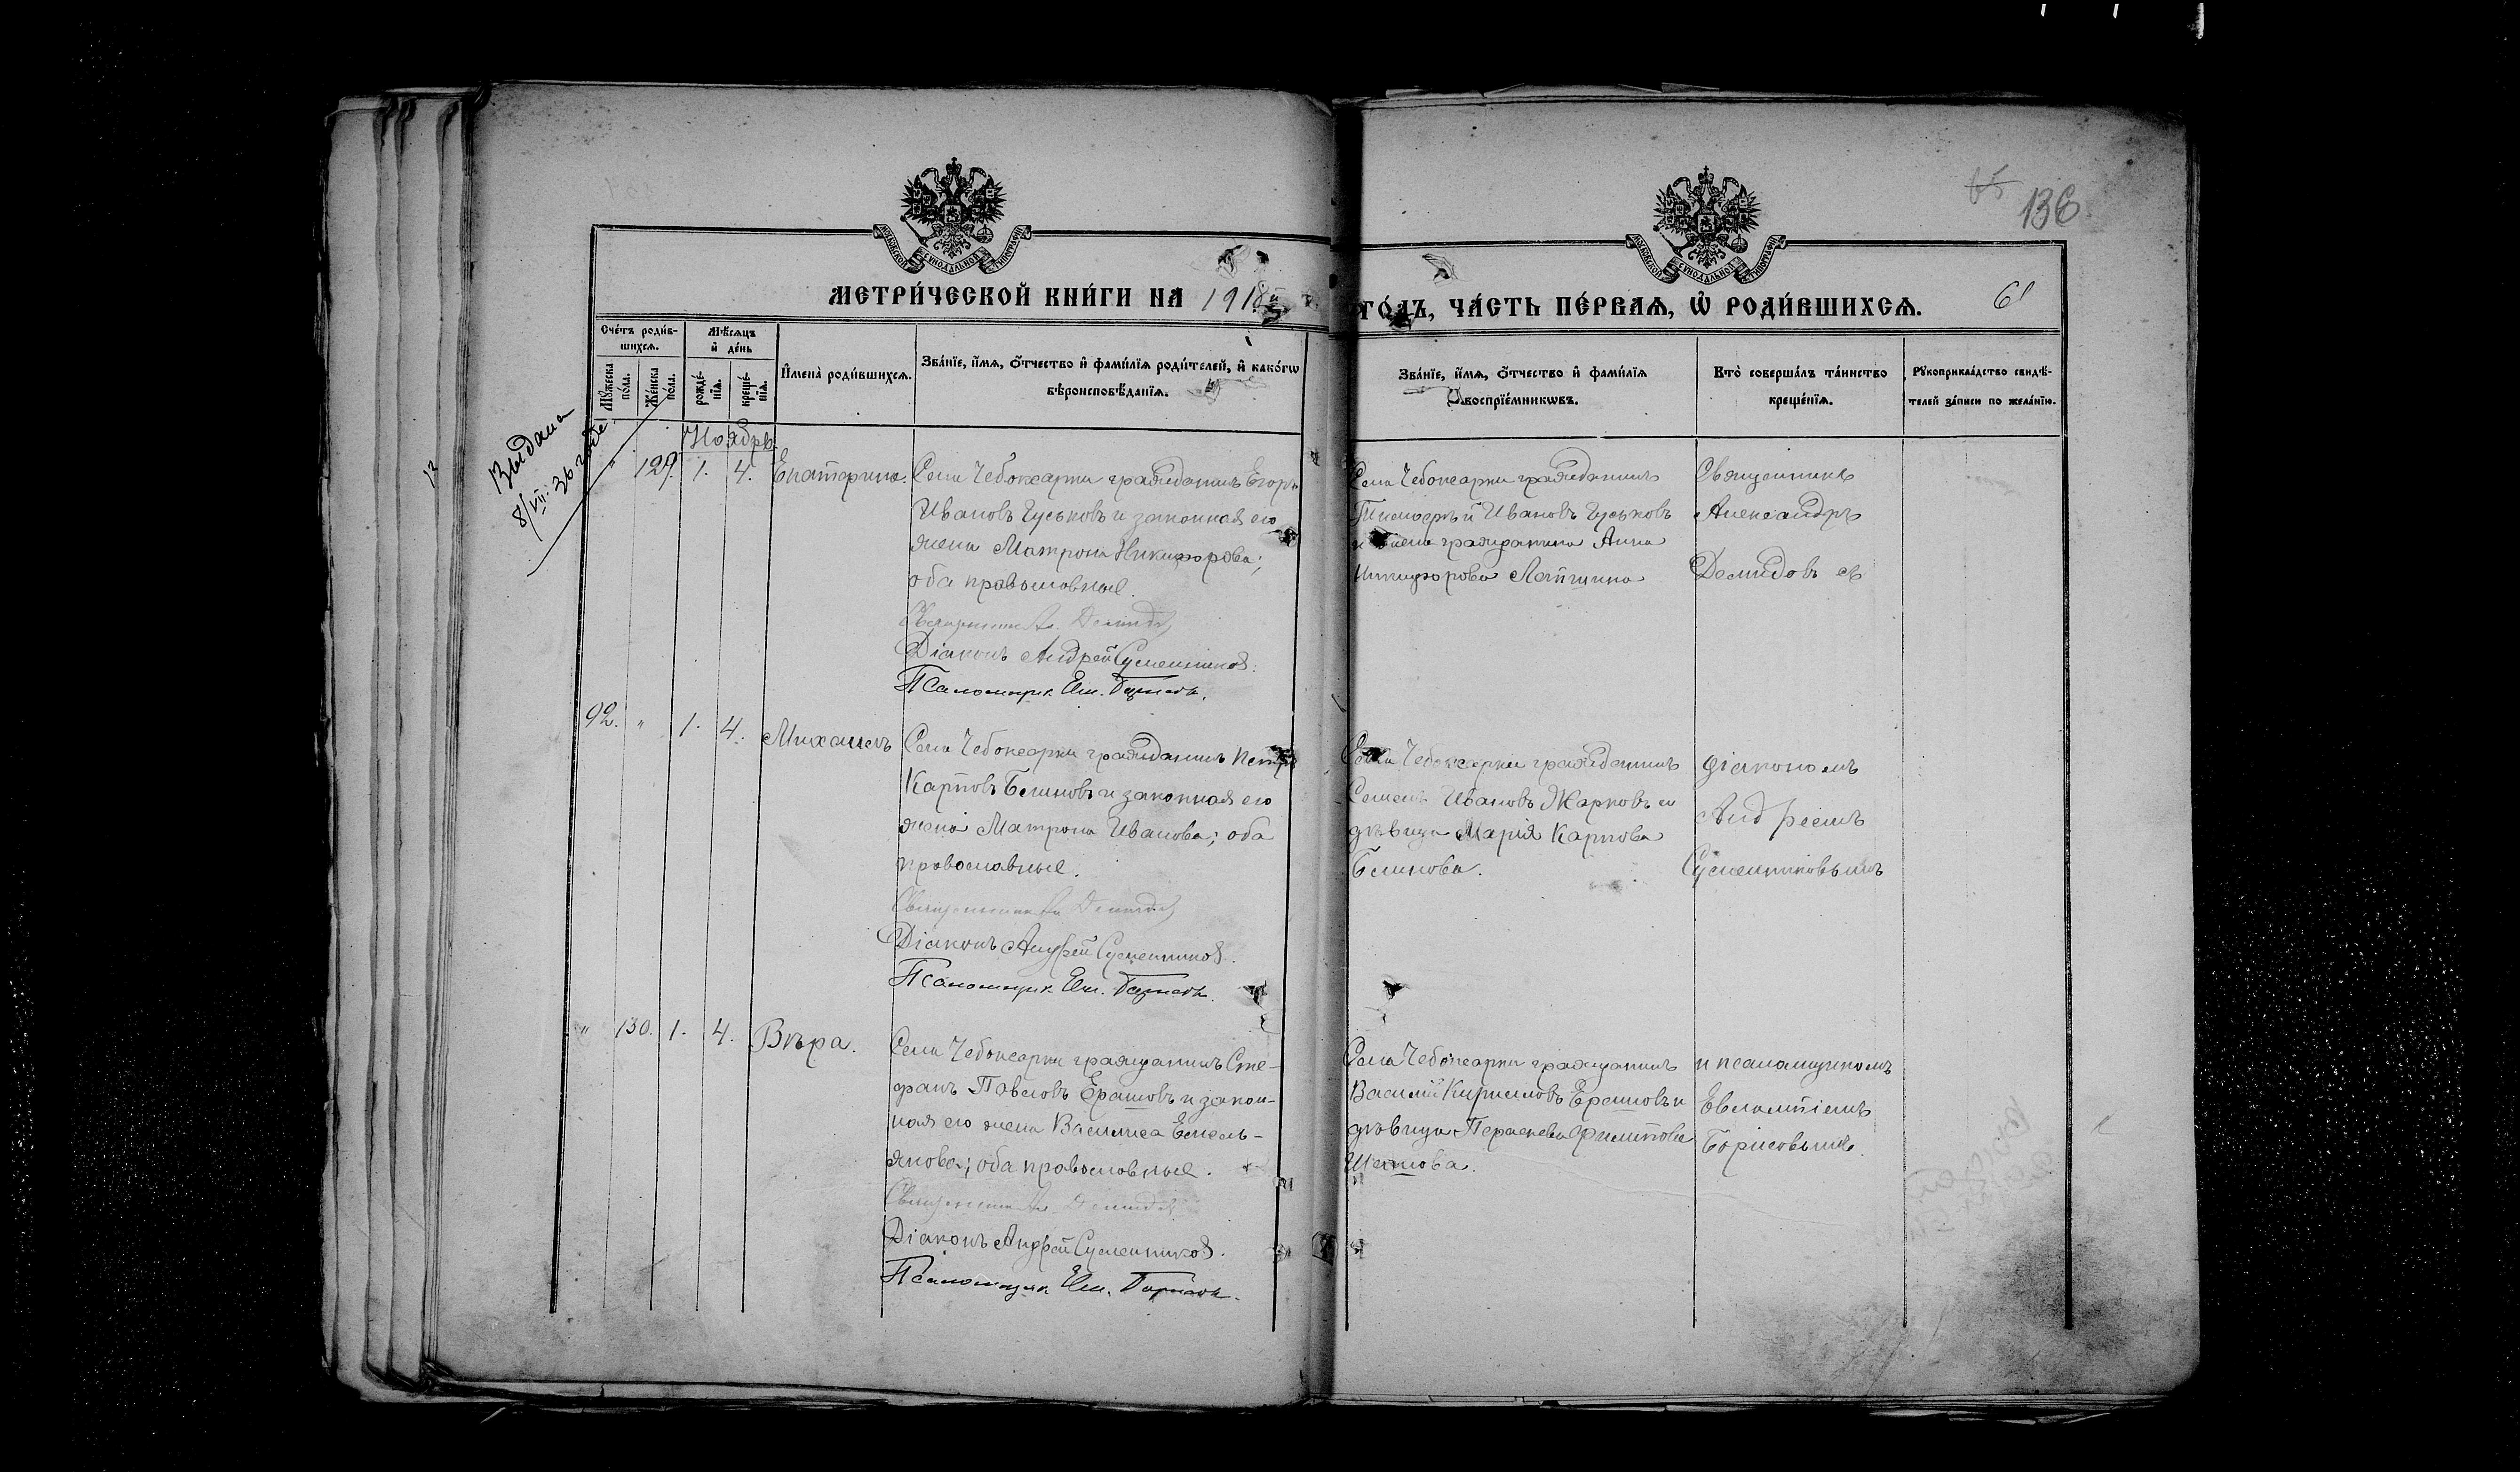 65
136
МОСКОВСКОЙ СѴНОДАЛЬНОЙ ТИПОГРАФІИ
МОСКОВСКОЙ СѴНОДАЛЬНОЙ ТИПОГРАФІИ
МЕТРИ́ЧЕСКОЙ КНИ́ГИ НА 1918й
ГО́ДЪ, ЧА́СТЬ ПЕ́РВАѦ, Ѽ РОДИ́ВШИХСѦ.
61
Сче́тъ роди́в-
шихсѧ.
Мꙋ́жеска по́ла.
Же́нска по́ла.
Мѣ́сѧцъ и҆ де́нь
рожде́-нїѧ.
креще́-нїѧ.
И҆мена̀ роди́вшихсѧ.
Зва́нїе, и҆́мѧ, ѻ҆́тчество и҆ фами́лїѧ роди́телей, и҆ како́гѡ
вѣроисповѣ́данїѧ.
Зва́нїе, и҆́мѧ, ѻ҆́тчество и҆ фами́лїѧ
воспрїе́мникѡвъ.
Кто̀ соверша́лъ та́инство
креще́нїѧ.
Рꙋкоприкла́дство свидѣ́-
телей за́писи по жела́нїю.
Выдана
8/VII. 36 годе
Ноябрь
" 129. 1. 4. Екатерина.
Села Чебоксарки гражданинъ Егоръ
Ивановъ Гуськовъ и законная его
жена Матрона Никифорова;
оба православные.
Священникъ Ал. Демидов
Діаконъ Андрей Сусментиков.
Псаломщик Евл. Борисов.
Села Чебоксарки гражданинъ
Тимоѳей Ивановъ Гуськовъ
и жена гражданина Анна
Никифорова Лапшина
Священникъ
Александръ
Демидовъ съ
92. " 1. 4. Михаилъ
Села Чебоксарки гражданинъ Петръ
Карповъ Блиновъ и законная его
жена Матрона Иванова; оба
православные.
Священникъ Ал. Демидов
Діаконъ Андрей Сусментиков.
Псаломщик Евл. Борисов.
Села Чебоксарки гражданинъ
Семенъ Ивановъ Жарковъ и
дѣвица Марія Карпова
Блинова.
діакономъ
Андреемъ
Сусментиковымъ
" 130. 1. 4. Вѣра.
Села Чебоксарки гражданинъ Сте-
фанъ Павловъ Ерашовъ и закон-
ная его жена Василиса Емель-
янова; оба православные.
Священникъ Ал. Демидов
Діаконъ Андрей Сусментиков.
Псаломщик Евл. Борисов.
Села Чебоксарки гражданинъ
Василій Кирилловъ Ерашовъ и
дѣвица Параскева Филиппова
и псаломщикомъ
Евлампіемъ
Борисовымъ.